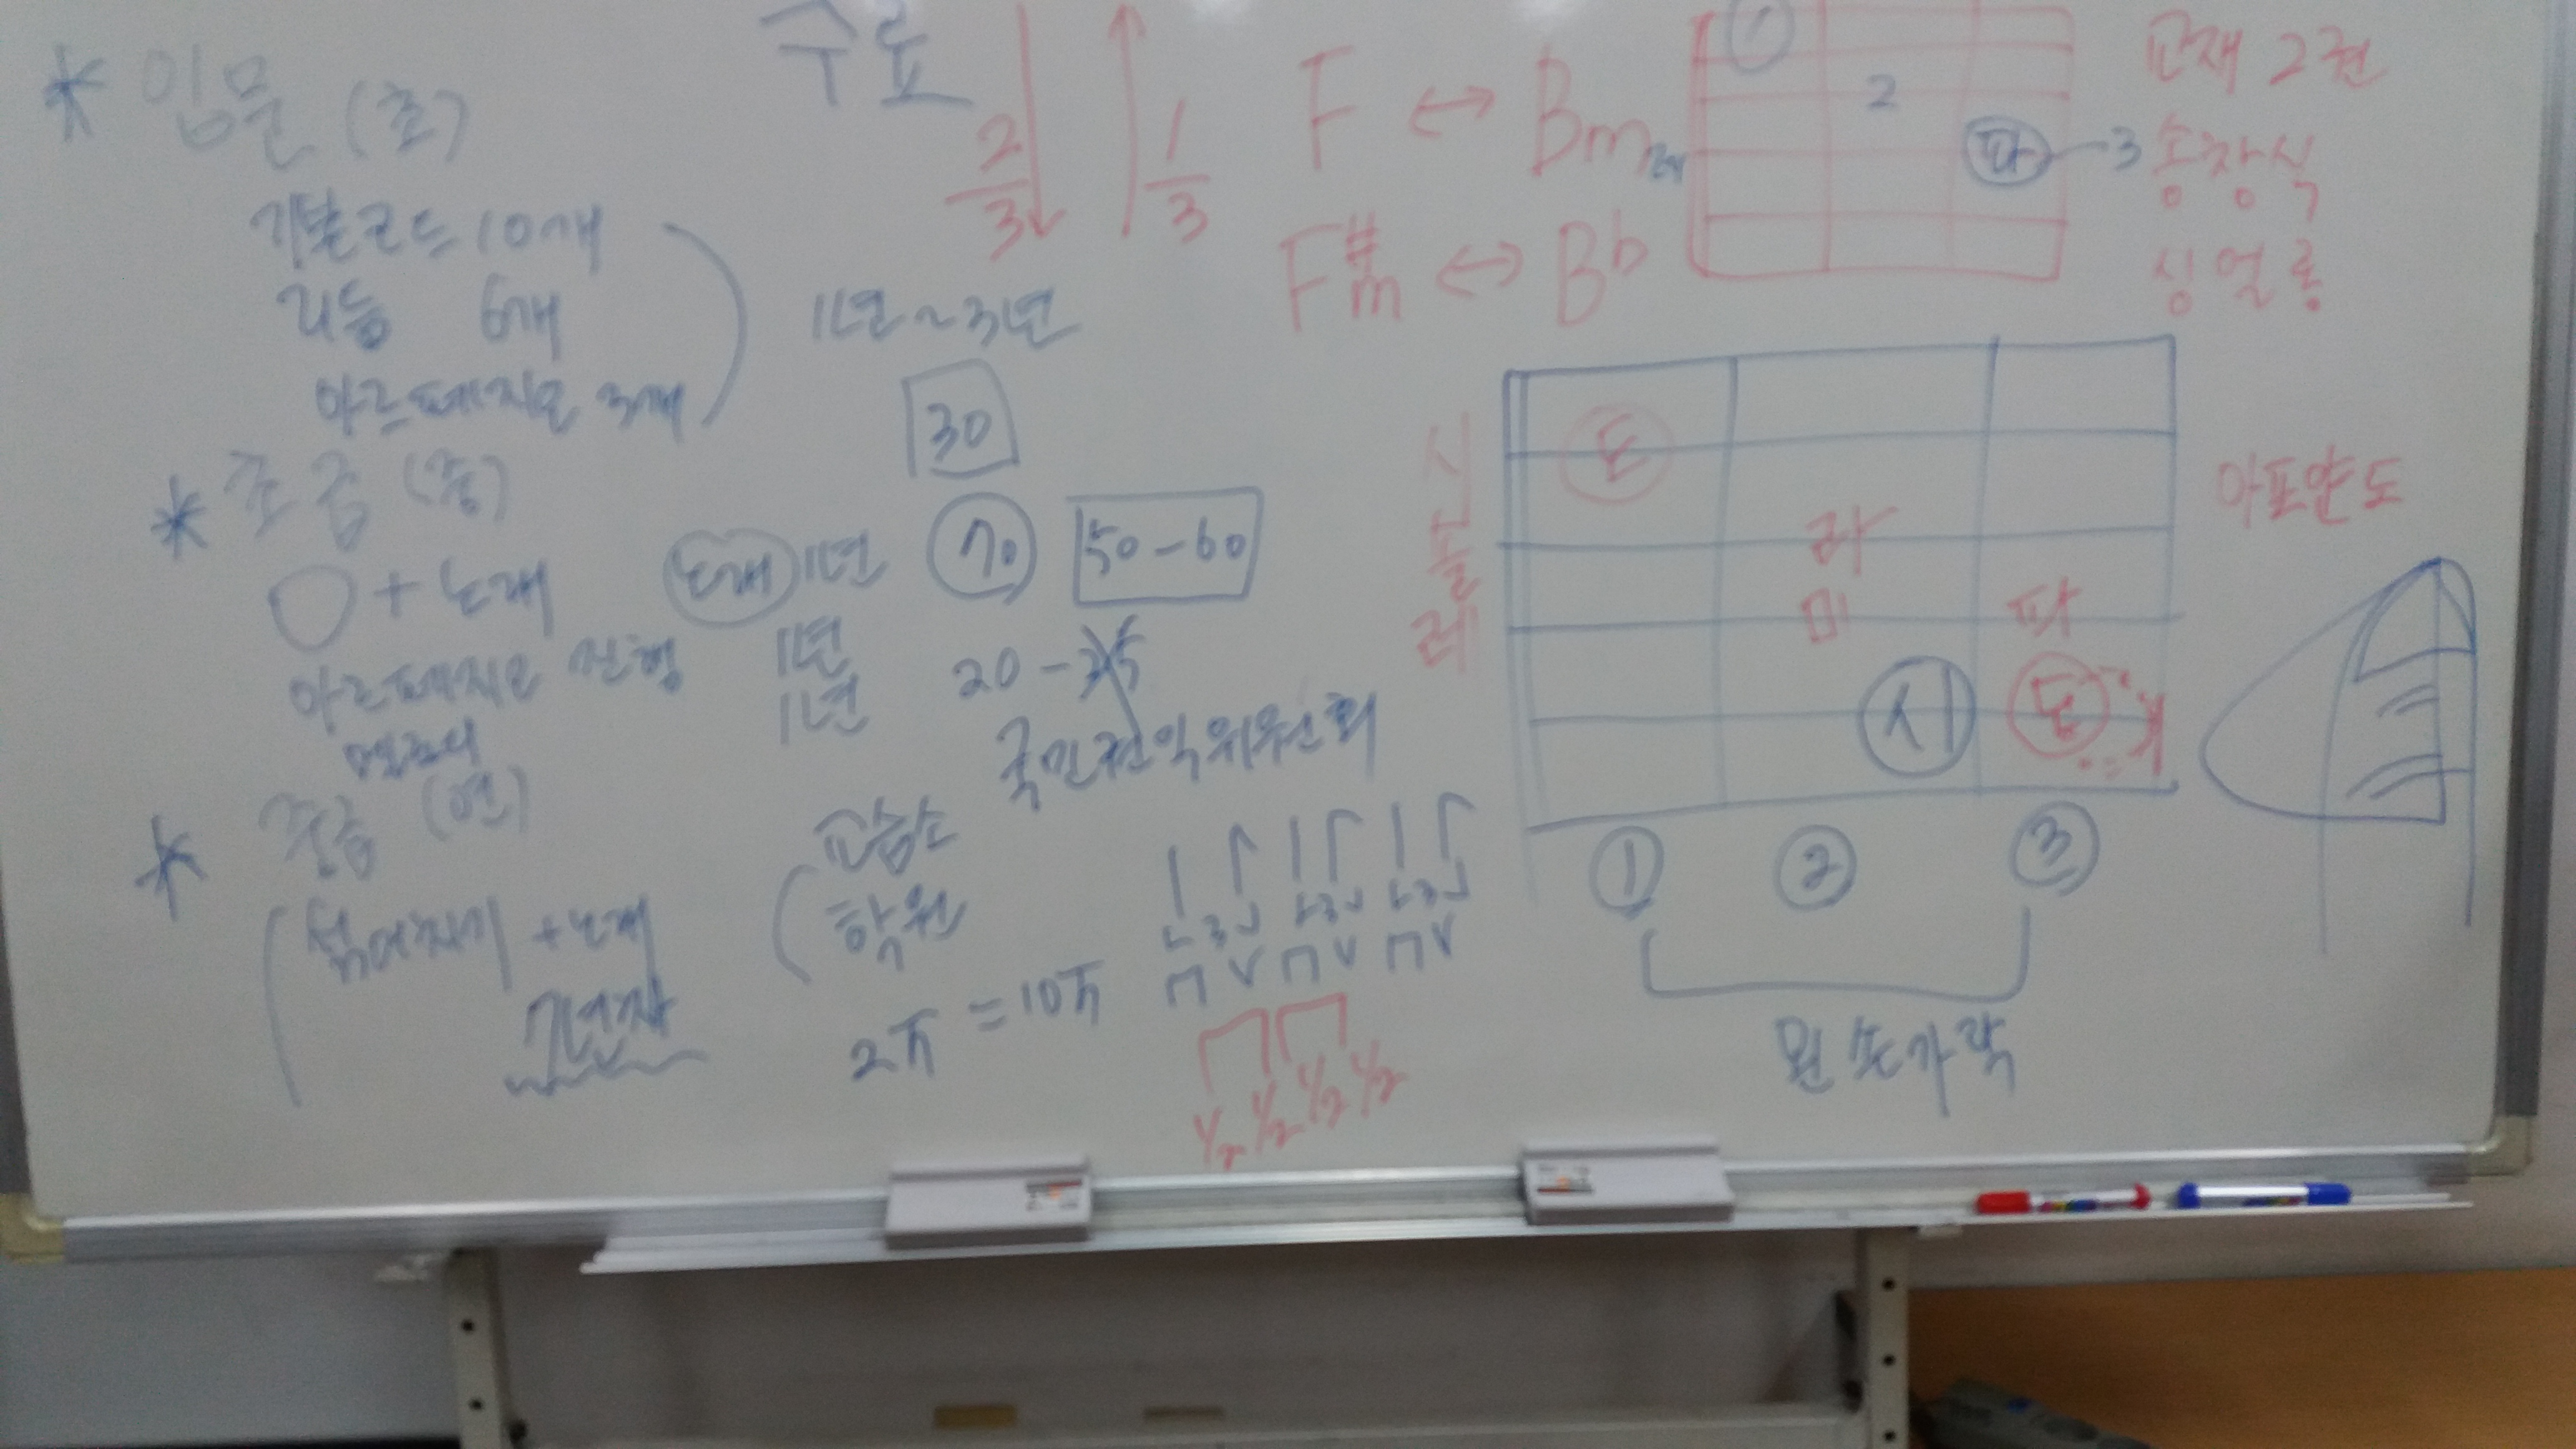 * 입문 (초)
기본코드 10개
리듬 6개
아르페지오 3개
1년~3년
30
* 초급 (중)
+ 노래
노래 1년
70
50-60
아르페지오 진행
1년
1년
20-35
멜로디
국민권익위원회
* 중급 (연)
교습소
학원
섞어치기 + 노래
7년차
2万 = 10万
수료
2/3
1/3
F ↔ Bm
F#m ↔ Bb
1
2
파 3
교재 2권
송창식
싱얼롱
시
솔
레
도
라
미
파
시
도
① ② ③
왼손가락
아포얀도
1/2 1/2 1/2 1/2